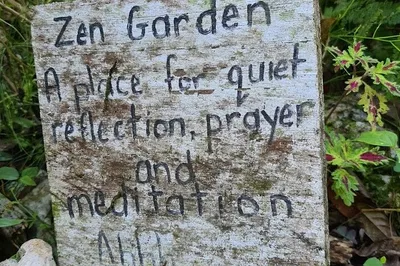 Zen Garden
A place for quiet
reflection, prayer
and
meditation